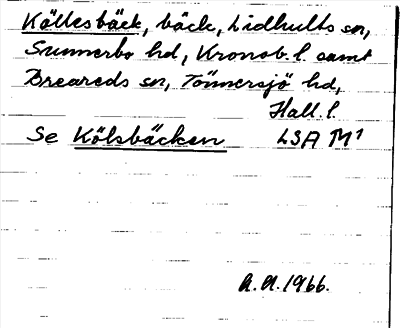 Köllesbäck, bäck, Lidhults sn,
Sunnerbo hd, Kronob. l. samt
Breareds sn, Tönnersjö hd,
Hall. l.
Se Kölsbäcken LSA M1
A.A. 1966.